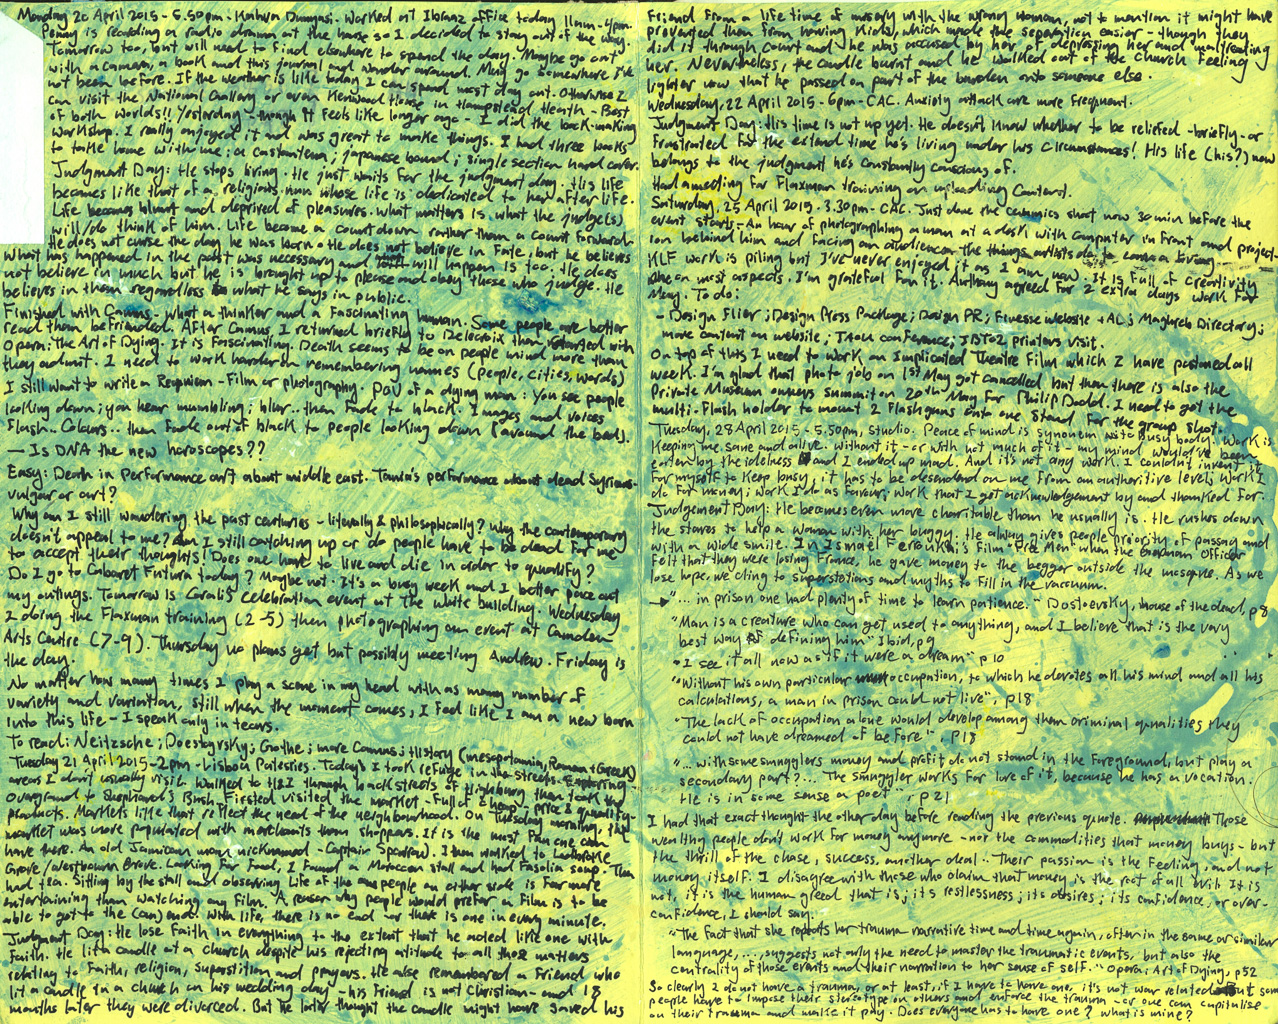 Monday 20 April 2015 - 5.50pm - Kahva Dunyasi. Worked at Ibraaz office today 11am - 4pm.
Penny is recording a radio drama at the house so I decided to stay out of the way.
Tomorrow too, but will need to find elsewhere to spend the day. Maybe go out
with a camera, a book and this journal and wander around. May go somewhere I've
not been before. If the weather is like today I can spend most day out. Otherwise I
can visit the National Gallery or even Kenwood House in Hampstead Heath - Best
of both worlds!! Yesterday - though it feels like longer ago - I did the book-making
workshop. I really enjoyed it and was great to make things. I had three books
to take home with me: a concertina; Japanese bound; single section hard cover.
Judgment Day: He stops living. He just waits for the judgment day. His life
becomes like that of a religious man whose life is dedicated to her after life.
Life becomes blunt and deprived of pleasures. What matters is what the judge(s)
will/do think of him. Life become a countdown rather than a count forward.
He does not curse the day he was born. He does not believe in Fate, but he believes
what has happened in the past was necessary and will happen is too. He does
not believe in much but he is brought up to please and obey those who judge. He
believes in them regardless to what he says in public.
Finished with Camus - what a thinker and a fascinating human. Some people are better
read than befriended. After Camus, I returned briefly to Delacroix than started with
Opera: the Art of Dying. It is fascinating. Death seems to be on people mind more than
they admit. I need to work harder on remembering names (people, cities, words)
I still want to write a Requiem - Film or photography. POV of a dying man: You see people
looking down; you hear mumbling; blur... then fade to black. Images and voices
flash.. Colours.. then fade out of black to people looking down (around the bed).
— Is DNA the new horoscopes??
Easy: Death in performance art about middle east. Tania's performance about dead Syrians -
vulgar or art?
Why am I still wandering the past centuries - literally & philosophically? Why the contemporary
doesn't appeal to me? Am I still catching up or do people have to be dead for me
to accept their thoughts? Does one have to live and die in order to qualify?
Do I go to Cabaret Futura today? Maybe not. It's a busy week and I better pace out
my outings. Tomorrow is Coral's celebration event at The White building. Wednesday
I doing the Flaxman training (2-5) then photographing an event at Camden
Arts Centre (7-9). Thursday no plans yet but possibly meeting Andrew. Friday is
the day.
No matter how many times I play a scene in my head with as many number of
variety and variation, still when the moment comes, I feel like I am a new born
into this life - I speak only in tears.
To read: Neitzsche; Doestoyvsky; Goethe; more Camus; History (mesopotamia, Roman + Greek)
Tuesday 21 April 2015 - 2pm - Lisboa Patisseries. Today I took refuge in the streets. Exploring
areas I don't usually visit. Walked to H&I through backstreets of Highbury then took the
overground to Shephard's Bush. Firsted visited the market - full of cheap - price & quality -
products. Markets like that reflect the need of the neighbourhood. On Tuesday morning, the
market was more populated with merchants than shoppers. It is the most fun one can
have there. An old Jamaican man, nicknamed - Captain Sparrow). I then walked to Ladbroke
Grove/Westbourne Grove. Looking for food, I found a Moroccan stall and had Fasolia soup. Then
had tea. Sitting by the stall and observing life of the people on either side is far more
entertaining than watching any film. A reason why people would prefer a film is to be
able to get to the (an) end. With life, there is no end - or there is one in every minute.
Judgment Day: He lose faith in everything to the extent that he acted like one with
faith. He lit a candle at a church despite his rejecting attitude to all those matters
relating to faith, religion, superstition and prayers. He also remembered a friend who
lit a candle in a church on his wedding day - his friend is not Christian - and 18
months later they were divorced. But he later thought the candle might have saved his
friend from a life time of misery with the wrong woman, not to mention it might have
prevented them from having kids, which made the separation easier - though they
did it through court and he was accused by her of depressing her and maltreating
her. Nevertheless, the candle burnt and he walked out of the church feeling
lighter now that he passed on part of the burden onto someone else.
Wednesday, 22 April 2015 - 6pm - CAC. Anxiety attack are more frequent.
Judgment Day: His time is not up yet. He doesn't know whether to be reliefed - briefly - or
frustrated for the extend time he's living under his circumstances! His life (his?) now
belongs to the judgment he's constantly conscious of.
Had a meeting for Flaxman training on uploading content.
Saturday, 25 April 2015 - 3.30pm - CAC. Just done the ceramics shot now 30 min before the
event starts - An hour of photographing a man at a desk with computer in front and project-
ion behind him and facing an audience - the things artists do to earn a living.
KLF work is piling but I've never enjoyed it as I am now. It is full of creativity
on most aspects. I'm grateful for it. Anthony agreed for 2 extra days work for
May. To do:
- Design Flier; Design Press Package; Design PR; Finesse Website + AL; Maghreb Directory;
more content on website; conference; JBTO2 printers visit.
On top of this I need to work on Implicated Theatre film which I have postponed all
week. I'm glad that photo job on 1st May got cancelled but then there is also the
Private Museum owners summit on 20th May for Philip Dodd. I need to get the
multi-flash holder to mount 2 flashguns onto one stand for the group shot.
Tuesday, 28 April 2015 - 5.50pm, studio: Peace of mind is synonym to busy body. Work is
keeping me sane and alive. Without it - or with not much of it - my mind would've been
eaten by the idelness and I ended up mad. And it's not any work. I couldn't invent it
for myself to keep busy, it has to be demanded on me from an authoritive level; work I
do for money; work I do as favour; work that I get acknowledgement by and thanked for.
Judgement Day: He becomes even more charitable than he usually is. He rushes down
the stares to help a woman with her buggy. He alway gives people priority of passay and
with a wide smile. In Ismael Ferroukhi's film Free Men when the German officer
felt that they were losing France, he gave money to the begger outside the mosque. As we
lose hope, we cling to superstations and myths to fill in the vacuum.
→ "... in prison one had plenty of time to learn patience." Dostoevsky, house of the dead, p8
"Man is a creature who can get used to anything, and I believe that is the very
best way of defining him" Ibid, p9
"I see it all now as if it were a dream" p10
"Without his own particular occupation, to which he devotes all his mind and all his
calculations, a man in prison could not live", p18
"The lack of occupation alone would develop among them criminal qualities they
could not have dreamed of before", p18
"... with some smugglers money and profit do not stand in the foreground, but play a
secondary part?... The smuggler works for love of it, because he has a vocation.
He is in some sense a poet", p21
I had that exact thought the other day before reading the previous quote. Those
wealthy people don't work for money anymore - nor the commodities that money buys - but
the thrill of the chase, success, another deal.. Their passion is the feeling, and not
money itself. I disagree with those who claim that money is the root of all evil. It is
not, it is the human greed that is; its restlessness; its desires; its confidence, or over-
confidence, I should say.
"The fact that she repeats her trauma narrative time and time again, often in the same or similar
language, ..., suggests not only the need to master the traumatic events, but also the
centrality of those events and their narration to her sense of self." Opera: Art of Dying, p52
So clearly I do not have a trauma, or at least, if I have to have one, it's not war related. But some
people have to impose their stereotype on others and enforce the trauma - or one can capitalise
on their trauma and make it pay. Does everyone has to have one? What is mine?